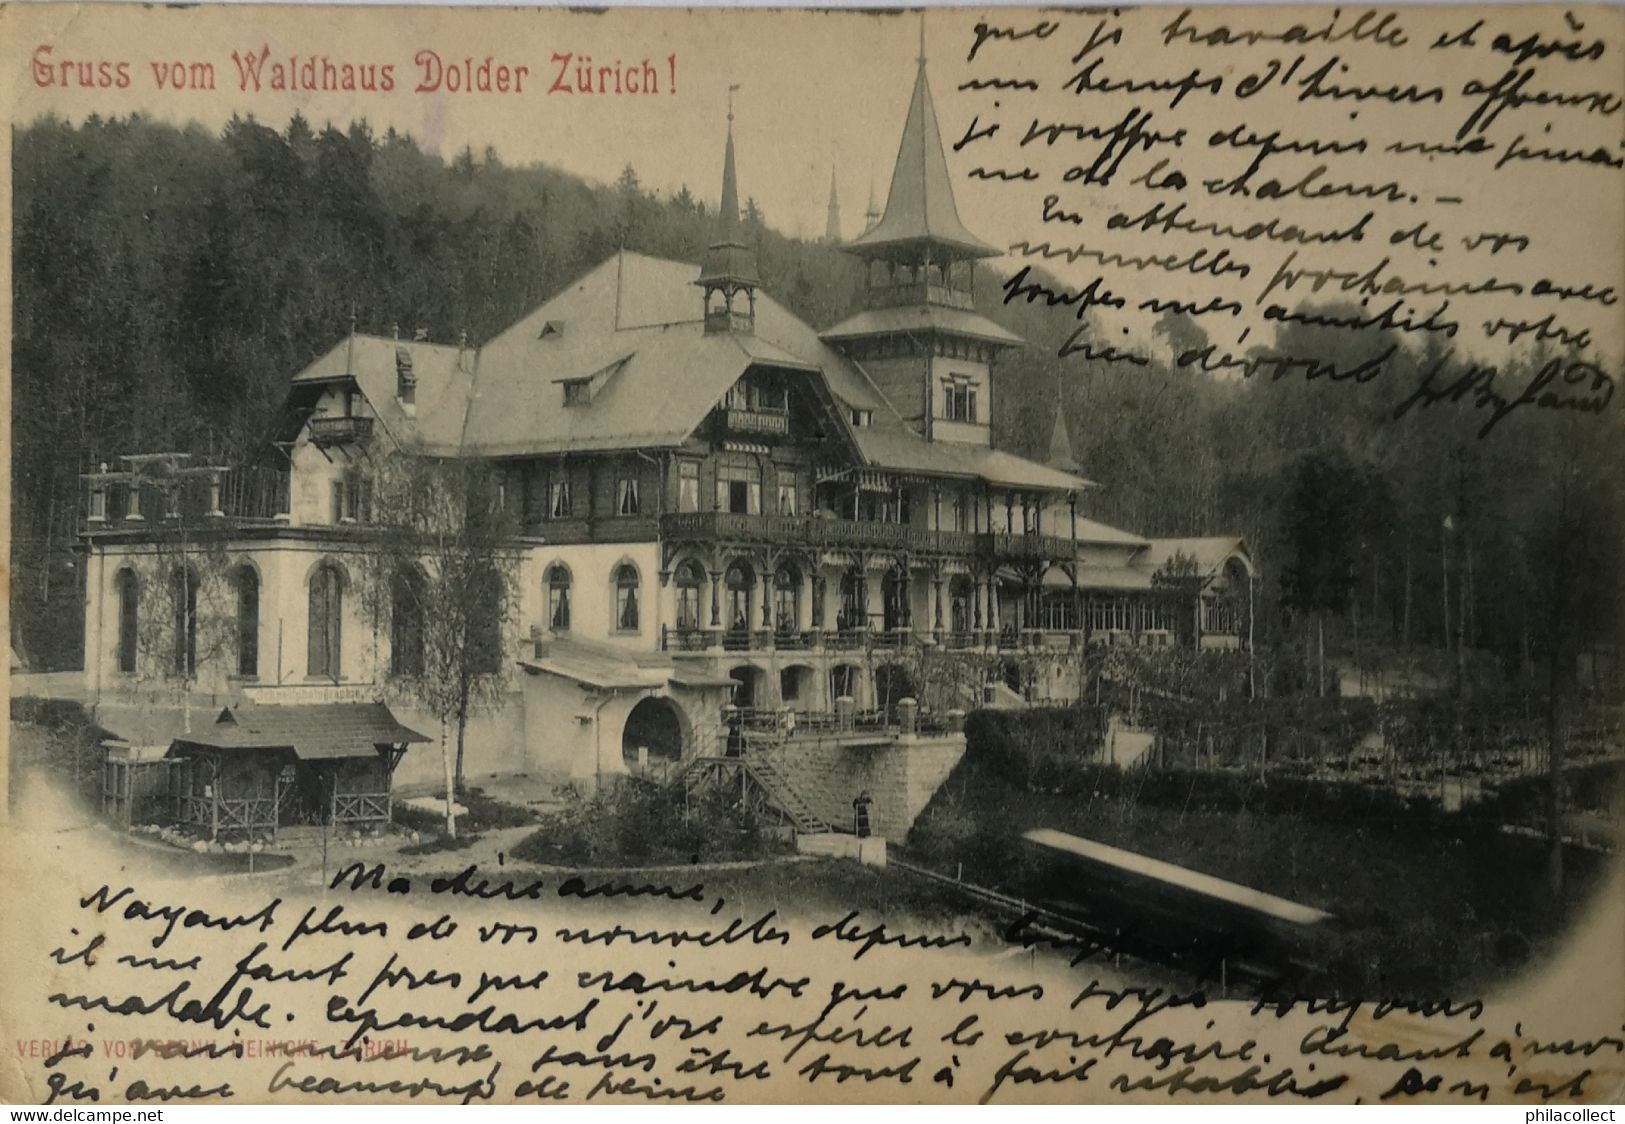 Gruss vom Waldhaus Dolder Zürich!
Ma chère amie,
N'ayant plus de vos nouvelles depuis longtemps
il me faut presque craindre que vous soyez toujours
malade. Cependant j'ose espérer le contraire. Quant à moi
je vais mieux, sans être tout à fait rétabli, ce n'est
qu'avec beaucoup de peine
que je travaille et après
un temps d'hivers affreux
je souffre depuis une semai
ne de la chaleur. —
En attendant de vos
nouvelles prochaines avec
toutes mes amitiés votre
bien dévoué
VERLAG VON BERNH. MEINICKE, ZÜRICH
philacollect